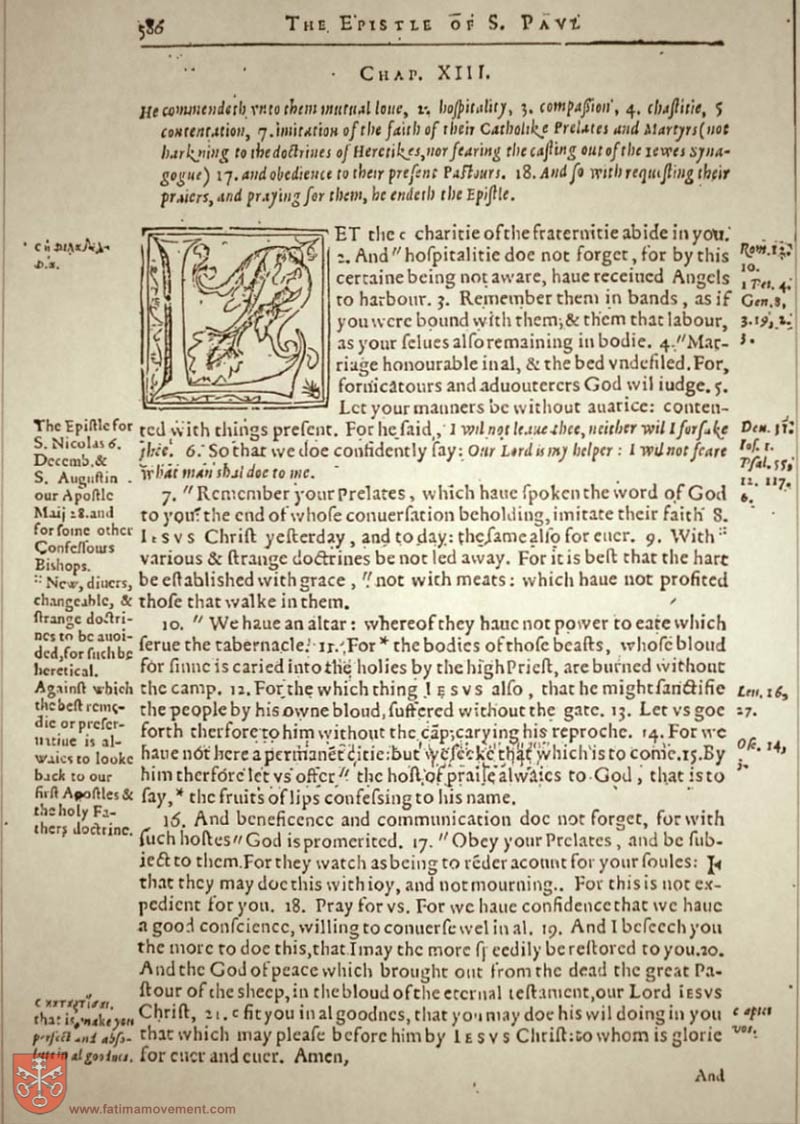 586
THE EPISTLE OF S. PAVL
CHAP. XIII.
He commendeth vnto them mutual loue, 2. hoſpitality, 3. compaſsion, 4. chaſtitie, 5
contentation, 7. imitation of the faith of their Catholike Prelates and Martyrs (not
harkning to the doctrines of Heretikes, nor fearing the caſting out of the Iewes ſyna-
gogue) 17. and obedience to their preſent Paſtours. 18. And ſo with requiſting their
praiers, and praying for them, he endeth the Epiſtle.
LET the c charitie of the fraternitie abide in you.
2. And " hoſpitalitie doe not forget, for by this
certaine being not aware, haue receiued Angels
to harbour. 3. Remember them in bands, as if
you were bound with them; & them that labour,
as your ſelues alſo remaining in bodie. 4. " Mar-
riage honourable in al, & the bed vndefiled. For,
fornicatours and aduouterers God wil iudge. 5.
Let your manners be without auarice: conten-
ted with things preſent. For he ſaid, I wil not leaue thee, neither wil I forſake
thee. 6. So that we doe confidently ſay: Our Lord is my helper: I wil not feare
what man shal doe to me.
7. " Remember your Prelates, which haue ſpoken the word of God
to you: the end of whoſe conuerſation beholding, imitate their faith 8.
IESVS Chriſt yeſterday, and to day: the ſame alſo for euer. 9. With ::
various & ſtrange doctrines be not led away. For it is beſt that the hart
be eſtablished with grace, " not with meats: which haue not profited
thoſe that walke in them.
10. " We haue an altar: whereof they haue not power to eate which
ſerue the tabernacle. 11. For * the bodies of thoſe beaſts, whoſe bloud
for ſinne is caried into the holies by the high Prieſt, are burned without
the camp. 12. For the which thing IESVS alſo, that he might ſanctifie
the people by his owne bloud, ſuffered without the gate. 13. Let vs goe
forth therfore to him without the cãp; carying his reproche. 14. For we
haue not here a permanẽt citie: but we ſeeke that which is to come. 15. By
him therfore let vs offer " the hoſt of praiſe alwaies to God, that is to
ſay, * the fruits of lips confeſsing to his name.
16. And beneficence and communication doe not forget, for with
ſuch hoſtes " God is promerited. 17. " Obey your Prelates, and be ſub-
iect to them. For they watch as being to rẽder acount for your ſoules:
that they may doe this with ioy, and not mourning.. For this is not ex-
pedient for you. 18. Pray for vs. For we haue confidence that we haue
a good conſcience, willing to conuerſe wel in al. 19. And I beſeech you
the more to doe this, that I may the more ſpeedily be reſtored to you. 20.
And the God of peace which brought out from the dead the great Pa-
ſtour of the sheep, in the bloud of the eternal teſtament, our Lord IESVS
Chriſt, 21. c fit you in al goodnes, that you may doe his wil doing in you
that which may pleaſe before him by IESVS Chriſt: to whom is glorie
for euer and euer. Amen,
And
The Epiſtle for
S. Nicolas 6.
Decemb. &
S. Auguſtin
our Apoſtle
Maij 28. and
for ſome other
Confeſſours
Bishops.
:: New, diuers,
changeable, &
ſtrange doctri-
nes to be auoi-
ded, for ſuch be
heretical.
Againſt which
the beſt reme-
die or preſer-
uatiue is al-
waies to looke
back to our
firſt Apoſtles &
the holy Fa-
thers doctrine.
that is, make you
perfect and abſo-
lute in al goodnes.
Rom. 12.
10.
1 Pet. 4.
Gen. 8,
3. 19, 2.
3.
Deu. 31.
Ioſ. 1.
Pſal. 55,
12. 117.
6.
Leu. 16,
27.
Oſe. 14,
3.
c aptet
vos.
www.fatimamovement.com